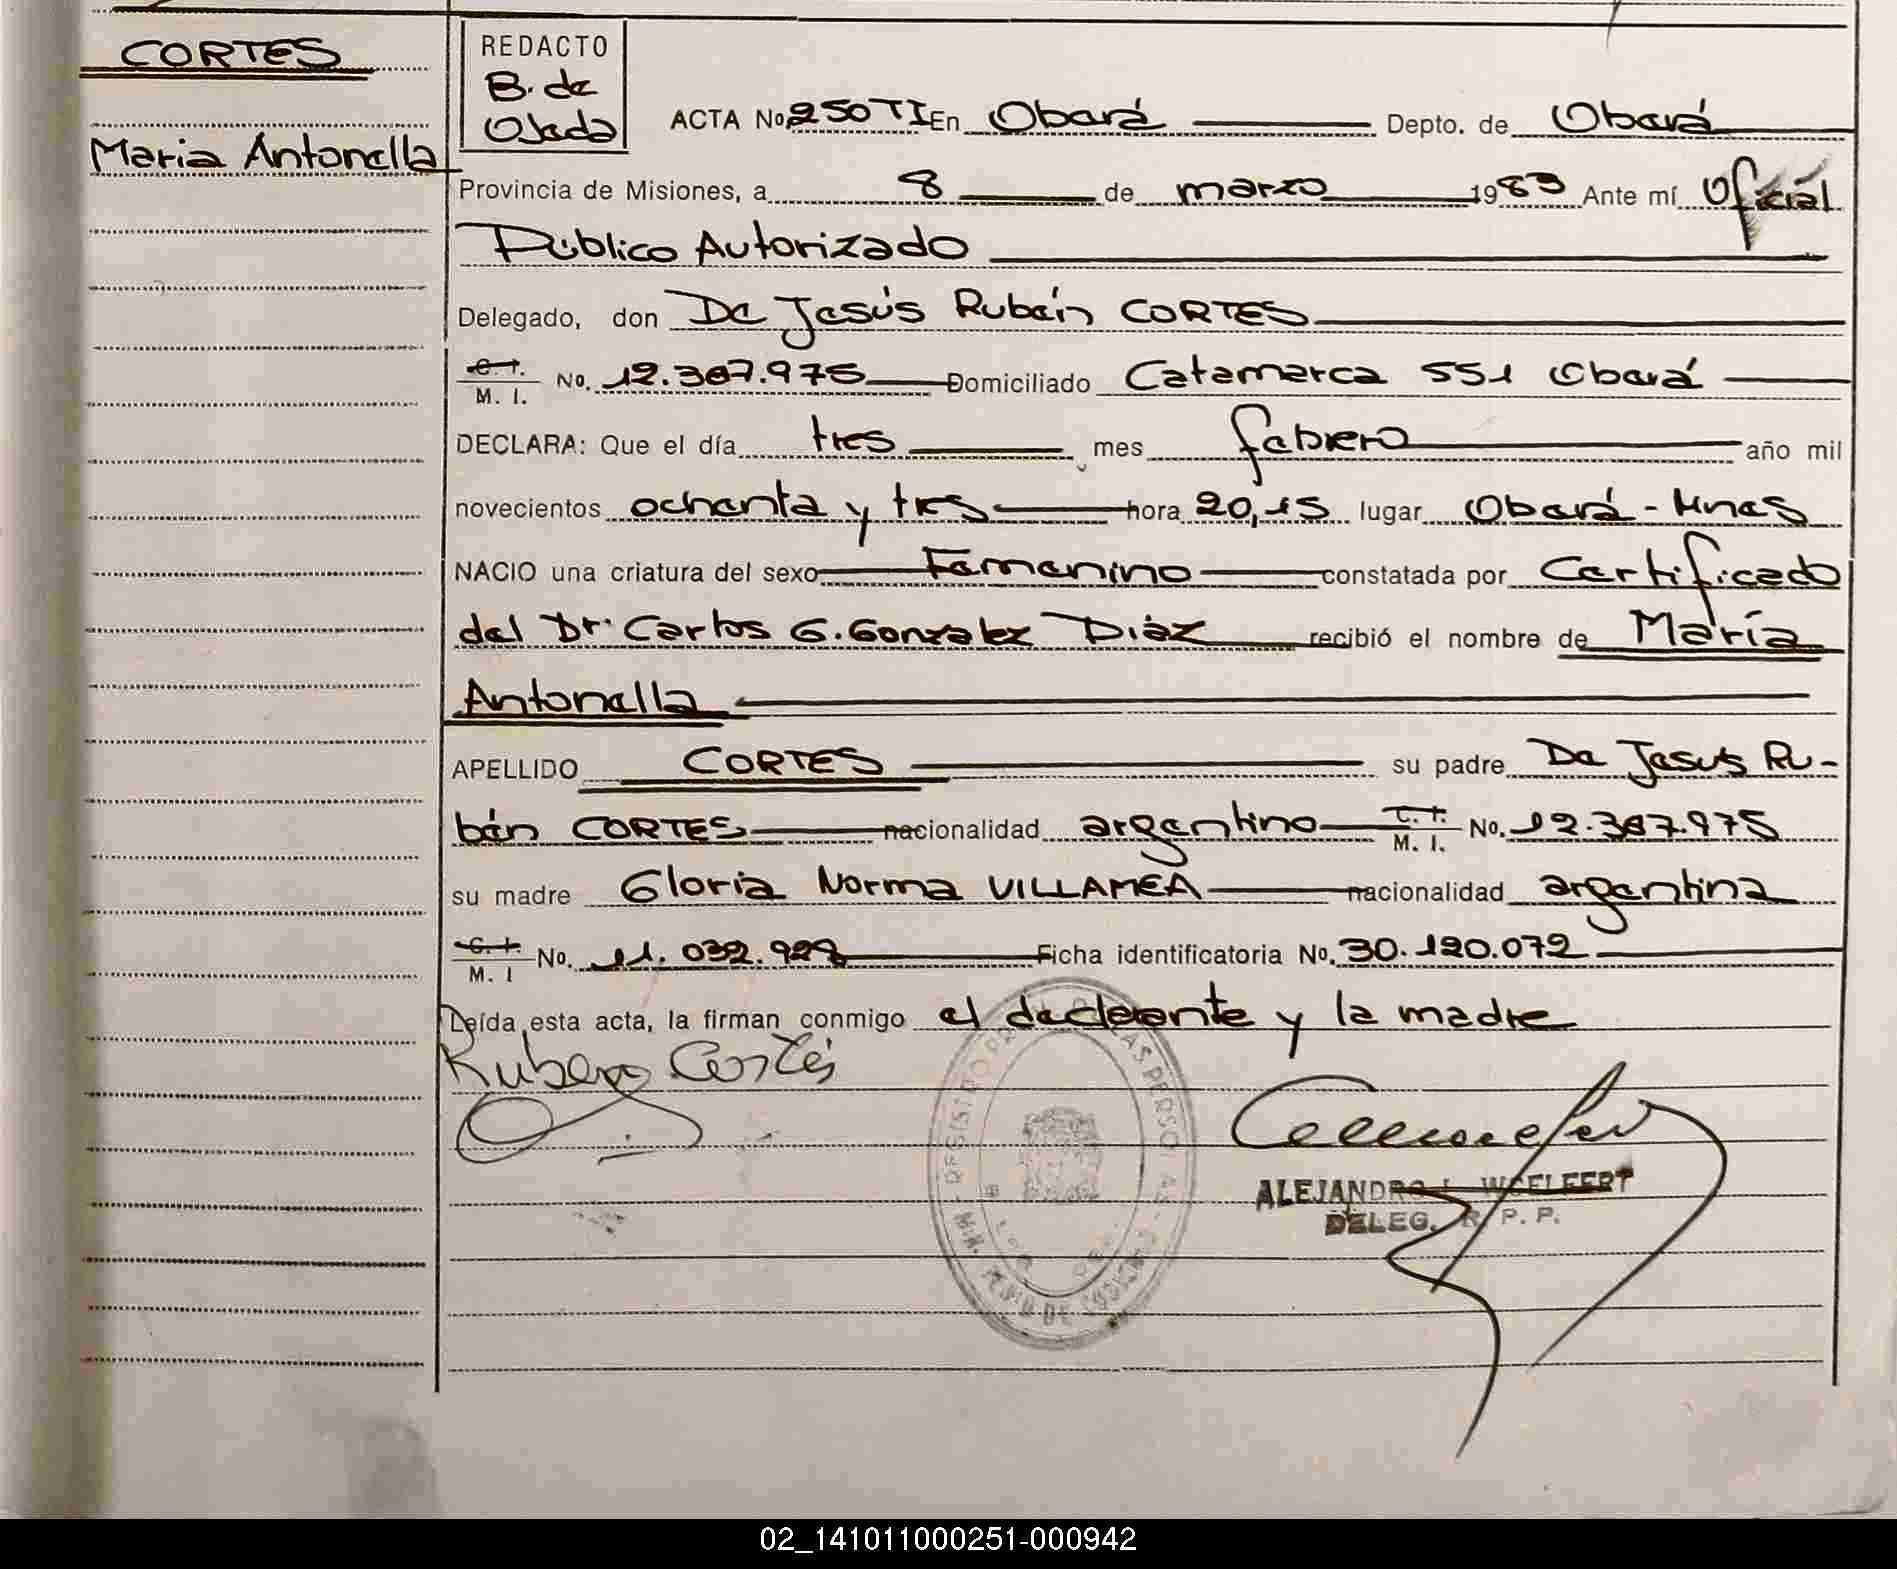 CORTES
Maria Antonella
REDACTO
B. de
Ojeda
ACTA No. 250 TI En Oberá Depto. de Oberá
Provincia de Misiones, a 8 de marzo 1983 Ante mí Oficial
Público Autorizado
Delegado, don De Jesús Rubén CORTES
C. I. M. I. No. 12.387.975 Domiciliado Catamarca 551 Oberá
DECLARA: Que el día tres mes febrero año mil
novecientos ochenta y tres hora 20,15 lugar Oberá - Mnes
NACIO una criatura del sexo Femenino constatada por Certificado
del Dr. Carlos G. Gonzalez Diaz recibió el nombre de María
Antonella
APELLIDO CORTES su padre De Jesus Ru-
bén CORTES nacionalidad argentino C. I. M. I. No. 12.387.975
su madre Gloria Norma VILLAMEA nacionalidad argentina
C. I. M. I No. 11.032.928 Ficha identificatoria No. 30.120.072
Leída esta acta, la firman conmigo el declarante y la madre
Ruben Cortés
ALEJANDRO L. WOELFERT
DELEG. R. P. P.
02_141011000251-000942